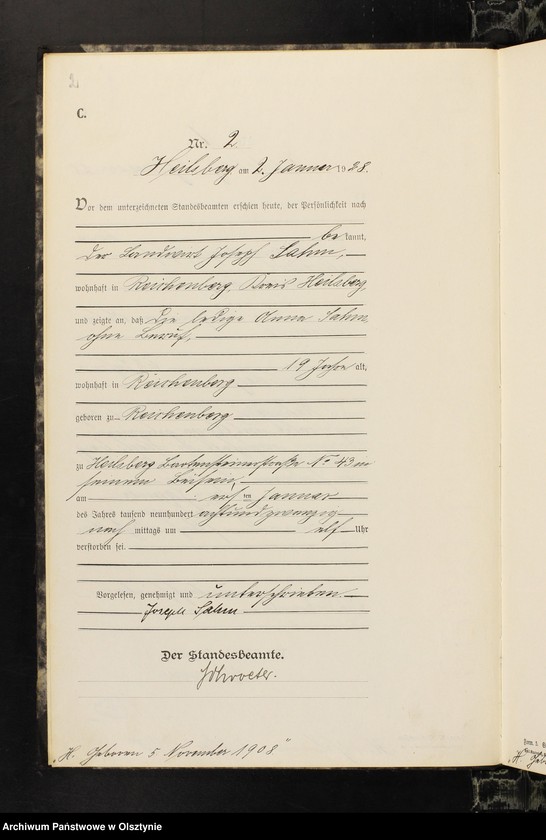 2
C.
Nr. 2
Heilsberg am 2. Januar 1928.
Vor dem unterzeichneten Standesbeamten erschien heute, der Persönlichkeit nach
bekannt,
der Landwirt Joseph Sahm,
wohnhaft in Reichenberg, Kreis Heilsberg,
und zeigte an, daß die ledige Anna Sahm,
ohne Beruf,
19 Jahre alt,
wohnhaft in Reichenberg
geboren zu Reichenberg
zu Heilsberg Bartensteinerstraße No 43 in
seinem Beisein,
am ersten Januar
des Jahres tausend neunhundert achtundzwanzig
nachmittags um elf Uhr
verstorben sei.
Vorgelesen, genehmigt und unterschrieben
Joseph Sahm
Der Standesbeamte.
Schroeter.
„H. Geboren 5 November 1908“
„H. Geb
Archiwum Państwowe w Olsztynie